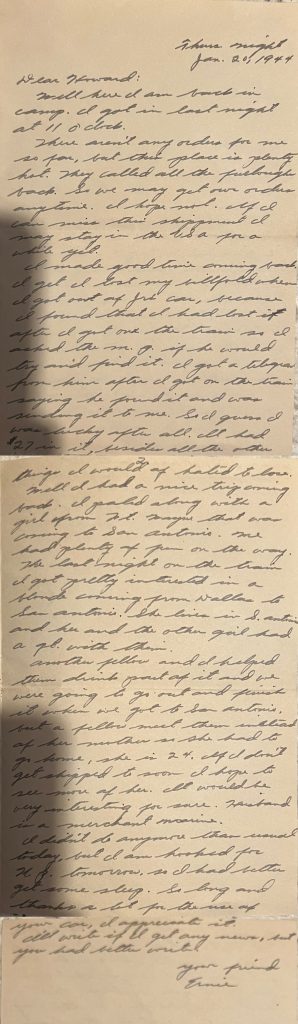 Thurs night
Jan. 20, 1944
Dear Howard:
Well here I am back in
camp. I got in last night
at 11 o'clock.
There aren't any orders for me
so far, but this place is plenty
hot. They called all the furloughs
back. So we may get our orders
anytime. I hope not. If I
can miss this shippment I
may stay in the USA for a
while yet.
I made good time coming back.
I lost my billfold when
I got out of car, because
I found that I had lost it
after I got on the train so I
asked the M.P. if he would
try and find it. I got a telegram
from him after I got on the train
saying he found it and was
sending it to me. So I guess I
was lucky after all. It had
$27 in it, besides all the other
things I would of hated to lose.
Well I had a nice trip coming
back. I paled along with a
girl from Ft. Wayne that was
coming to San Antonio. We
had plenty of fun on the way.
The last night on the train
I got pretty interested in a
blonde coming from Dallas to
San Antonio. She lives in S. Antonio
and her and the other girl had
a qt. with them.
Another fellow and I helped
them drink part of it and we
were going to go out and finish
it when we got to San Antonio,
but a fellow meet them instead
of her mother so she had to
go home, she is 24. If I don't
get shipped to soon I hope to
see more of her. It would be
very interesting for sure. Husband
is a merchant marine.
I didn't do anymore than usual
today, but I am hooked for
tomorrow, so I had better
get some sleep. So long and
thanks a lot for the use of
your car, I appreciate it.
I'll write if I get any news, but
you had better write.
your friend
Ernie